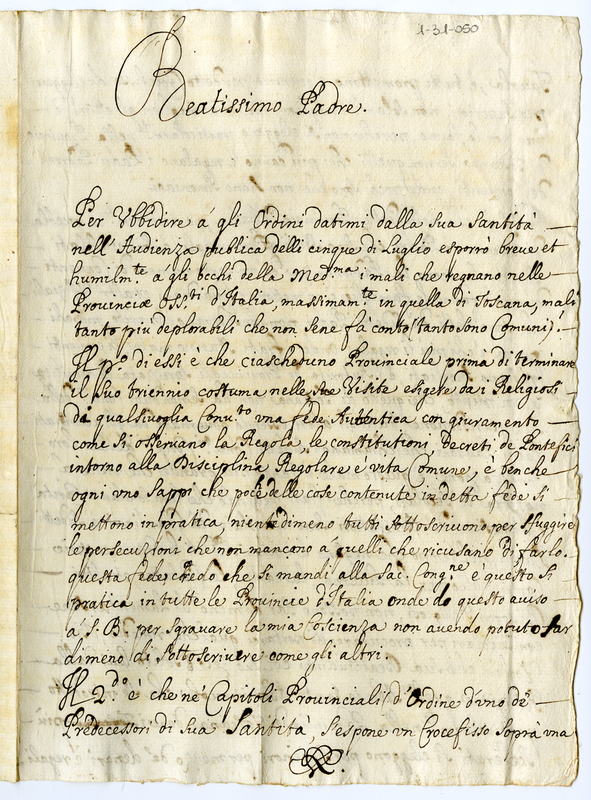 1-31-050
Beatissimo Padre.
Per Vbbidire á gli Ordini datimi dalla Sua Santità
nell'Audienza publica delli cinque di Luglio esporrò breve et
humilm.te á gli occhi della Med.ma i mali che regnano nelle
Provinciæ Oss.ti d'Italia, massimam.te in quella di Toscana, mali
tanto più deplorabili che non sene fà conto (tanto sono Comuni).
Il p.o di essi è che ciascheduno Provinciale prima di terminare
il Suo triennio costuma nelle Visite esigere da i Religiosi
di qualsivoglia Conv.to vna fede Autentica con giuramento
come si osservano la Regola, le constitutioni Decreti de Pontefici
intorno alla Disciplina Regolare é vita Comune, é benche
ogni vno Sappi che poche delle cose contenute in detta fede Si
mettono in pratica, nientedimeno tutti Sottoscrivono per Sfuggire
le persecuzioni che non mancano á quelli che ricusano Di farlo.
questa fede credo che Si mandi alla Sac. Cong.ne é questo Si
pratica in tutte le Provincie d'Italia onde do questo aviso
á S. B. per Sgravare la mia Coscienza non avendo potuto far
dimeno di Sottoscrivere come gli altri.
Il 2.do é che ne Capitoli Provinciali (d'Ordine d'vno de
Predecessori di Sua Santità, S'espone vn Crocefisso Soprà vna